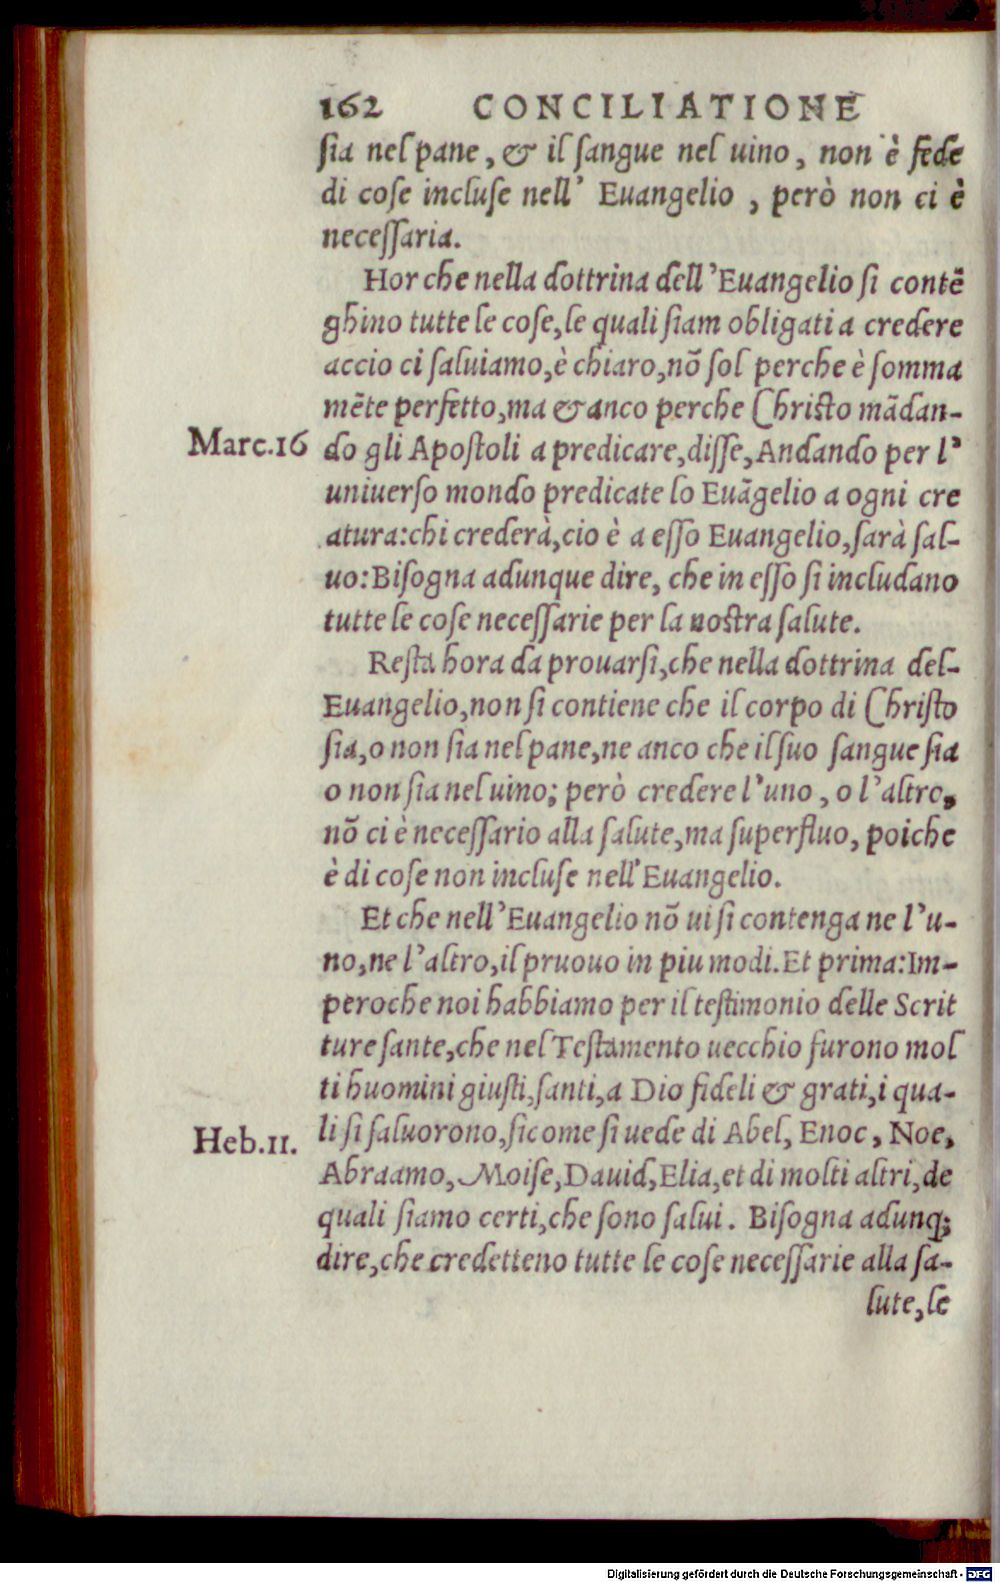 162 CONCILIATIONE
ſia nel pane, & il ſangue nel uino, non è fede
di coſe incluſe nell' Euangelio, però non ci è
neceſſaria.
Hor che nella dottrina dell'Euangelio ſi contẽ
ghino tutte le coſe, le quali ſiam obligati a credere
accio ci ſaluiamo, è chiaro, nõ ſol perche è ſomma
mẽte perfetto, ma & anco perche Chriſto mãdan-
Marc.16 do gli Apoſtoli a predicare, diſſe, Andando per l'
uniuerſo mondo predicate lo Euãgelio a ogni cre
atura: chi crederà, cio è a eſſo Euangelio, ſarà ſal-
uo: Biſogna adunque dire, che in eſſo ſi includano
tutte le coſe neceſſarie per la noſtra ſalute.
Reſta hora da prouarſi, che nella dottrina del-
Euangelio, non ſi contiene che il corpo di Chriſto
ſia, o non ſia nel pane, ne anco che il ſuo ſangue ſia
o non ſia nel uino; però credere l'uno, o l'altro,
nõ ci è neceſſario alla ſalute, ma ſuperfluo, poiche
è di coſe non incluſe nell'Euangelio.
Et che nell'Euangelio nõ ui ſi contenga ne l'u-
no, ne l'altro, il pruouo in piu modi. Et prima: Im-
peroche noi habbiamo per il teſtimonio delle Scrit
ture ſante, che nel Teſtamento uecchio furono mol
ti huomini giuſti, ſanti, a Dio fideli & grati, i qua-
Heb.11. li ſi ſaluorono, ſicome ſi uede di Abel, Enoc, Noe,
Abraamo, Moiſe, Dauid, Elia, et di molti altri, de
quali ſiamo certi, che ſono ſalui. Biſogna adunq;
dire, che credetteno tutte le coſe neceſſarie alla ſa-
lute, le
Digitalisierung gefördert durch die Deutsche Forschungsgemeinschaft - DFG